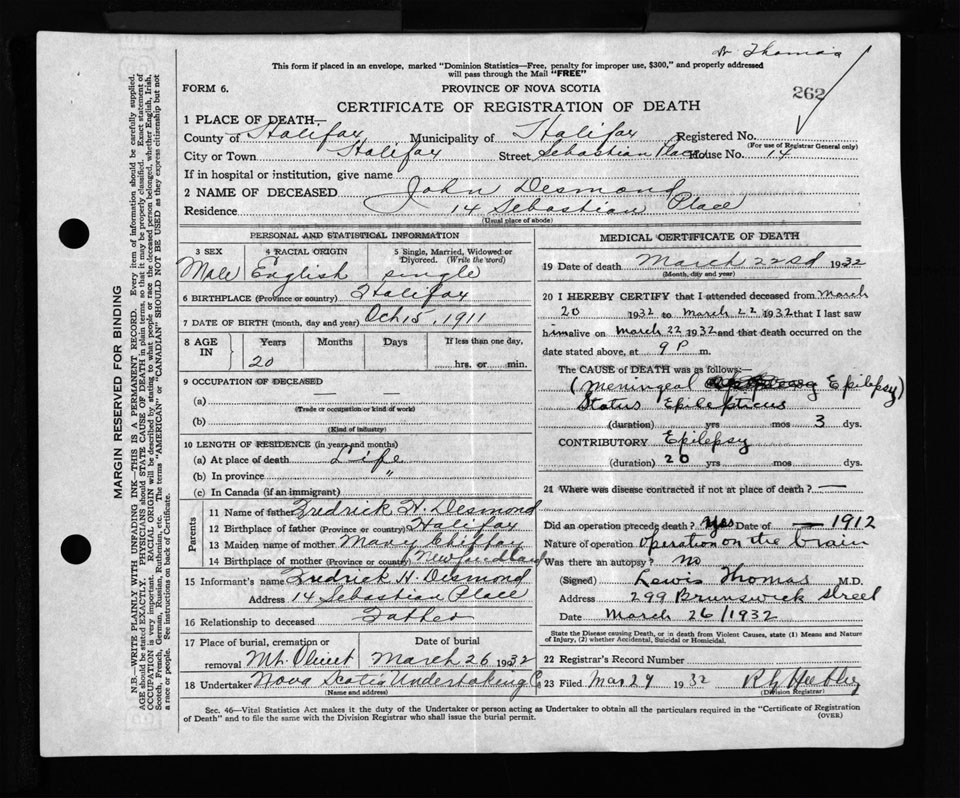 Dr Thomas
This form if placed in an envelope, marked "Dominion Statistics—Free, penalty for improper use, $300," and properly addressed
will pass through the Mail "FREE"
FORM 6.
PROVINCE OF NOVA SCOTIA
262
CERTIFICATE OF REGISTRATION OF DEATH
1 PLACE OF DEATH—
County of Halifax Municipality of Halifax Registered No.
(For use of Registrar General only)
City or Town Halifax Street Sebastian Place House No. 14
If in hospital or institution, give name
2 NAME OF DECEASED John Desmond
Residence 14 Sebastian Place
(Usual place of abode)
PERSONAL AND STATISTICAL INFORMATION
3 SEX 4 RACIAL ORIGIN 5 Single, Married, Widowed or
Divorced. (Write the word)
Male English single
6 BIRTHPLACE (Province or country) Halifax
7 DATE OF BIRTH (month, day and year) Oct 15, 1911
8 AGE Years Months Days If less than one day,
IN 20 hrs. or min.
9 OCCUPATION OF DECEASED
(a) — —
(Trade or occupation or kind of work)
(b)
(Kind of industry)
10 LENGTH OF RESIDENCE (in years and months)
(a) At place of death Life
(b) In province "
(c) In Canada (if an immigrant)
Parents
11 Name of father Fredrick H. Desmond
12 Birthplace of father (Province or country) Halifax
13 Maiden name of mother Mary
14 Birthplace of mother (Province or country) Newfoundland
15 Informant's name Fredrick H. Desmond
Address 14 Sebastian Place
16 Relationship to deceased Father
17 Place of burial, cremation or Date of burial
removal Mt. Olivet March 26 1932
18 Undertaker Nova Scotia Undertaking Co
(Name and address)
MEDICAL CERTIFICATE OF DEATH
19 Date of death March 22nd 1932
(Month, day and year)
20 I HEREBY CERTIFY that I attended deceased from March
20 1932 to March 22 1932 that I last saw
him alive on March 22 1932 and that death occurred on the
date stated above, at 9 P m.
The CAUSE of DEATH was as follows:—
(Meningeal Epilepsy)
Status Epilepticus
(duration) yrs mos 3 dys.
CONTRIBUTORY Epilepsy
(duration) 20 yrs mos dys.
21 Where was disease contracted if not at place of death? —
Did an operation precede death? Yes Date of — 1912
Nature of operation Operation on the brain
Was there an autopsy? No
(Signed) Lewis Thomas M.D.
Address 299 Brunswick Street
Date March 26/1932
State the Disease causing Death, or in death from Violent Causes, state (1) Means and Nature
of Injury, (2) whether Accidental, Suicidal or Homicidal.
22 Registrar's Record Number
23 Filed Mar 29 1932
(Division Registrar)
Sec. 46—Vital Statistics Act makes it the duty of the Undertaker or person acting as Undertaker to obtain all the particulars required in the "Certificate of Registration
of Death" and to file the same with the Division Registrar who shall issue the burial permit.
(OVER)
MARGIN RESERVED FOR BINDING
N.B.—WRITE PLAINLY WITH UNFADING INK—THIS IS A PERMANENT RECORD. Every item of information should be carefully supplied.
AGE should be stated EXACTLY. PHYSICIANS should STATE CAUSE OF DEATH in plain terms, so that it may be properly classified. Exact statement of
OCCUPATION is very important. RACIAL ORIGIN will be described by stating to what people or race the deceased person belonged, whether English, Irish,
Scotch, French, German, Russian, Ruthenian, etc. The terms "AMERICAN" or "CANADIAN" SHOULD NOT BE USED as they express citizenship but not
a race of people. See instructions on back of Certificate.